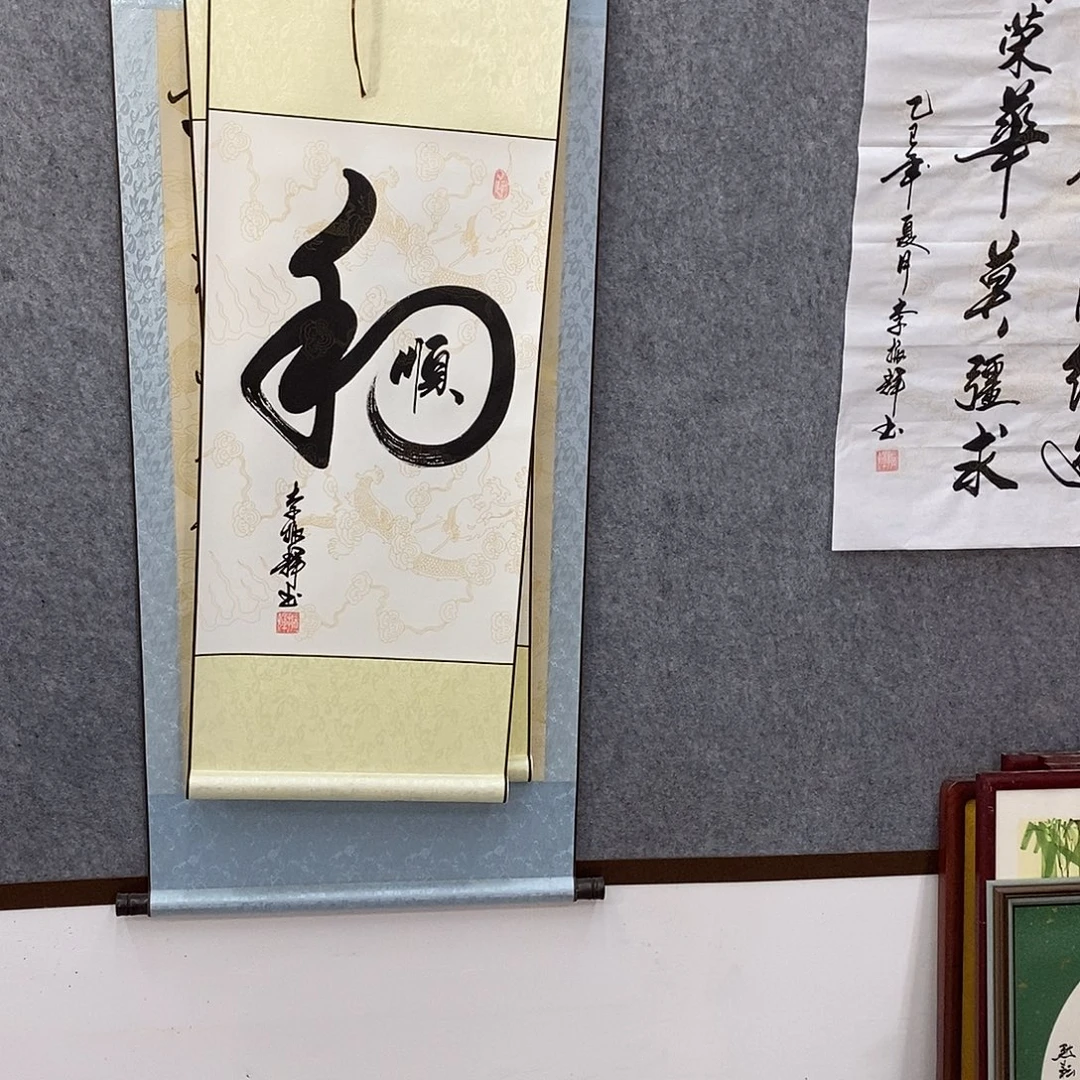 和
順
李振輝书
荣華莫疆求
乙巳年夏月李振輝书